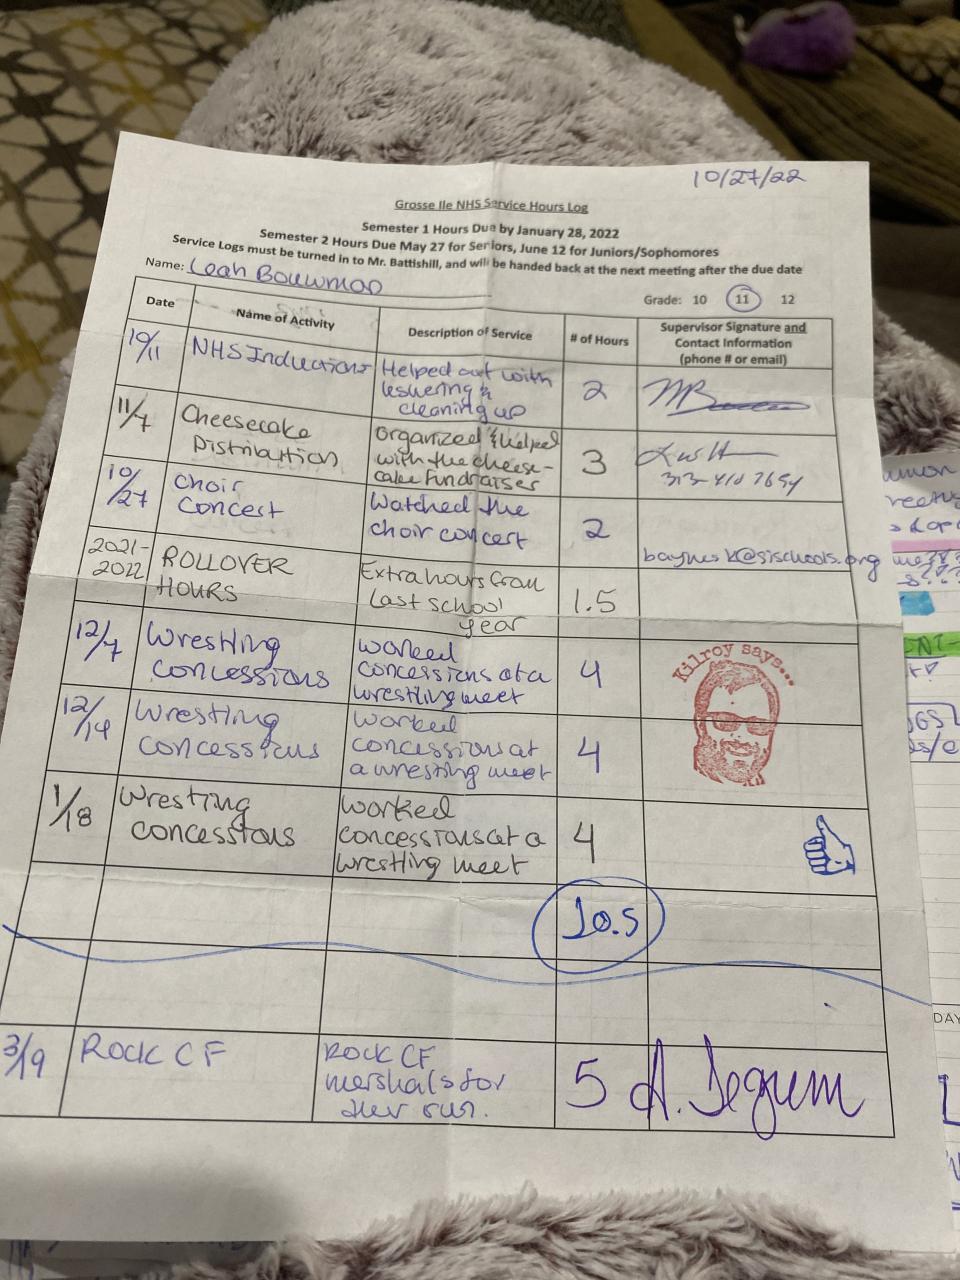 10/27/22
Grosse Ile NHS Service Hours Log
Semester 1 Hours Due by January 28, 2022
Semester 2 Hours Due May 27 for Seniors, June 12 for Juniors/Sophomores
Service Logs must be turned in to Mr. Battishill, and will be handed back at the next meeting after the due date
Name: Leah Bouwman
Grade: 10 11 12
Date Name of Activity Description of Service # of Hours Supervisor Signature and
Contact Information
(phone # or email)
10/11 NHS Inductions Helped out with
ushering &
cleaning up
2
11/7 Cheesecake
Distribution
Organized & helped
with the cheese-
cake fundraiser
3
313-410 7654
10/27 Choir
Concert
Watched the
choir concert
2
2021-
2022
ROLLOVER
HOURS
Extra hours from
last school
year
1.5
12/7 Wrestling
concessions
worked
concessions at a
wrestling meet
4
Kilroy says...
12/14 Wrestling
concessions
worked
concessions at
a wrestling meet
4
1/18 Wrestling
concessions
worked
concessions at a
wrestling meet
4
10.5
3/19 ROCK CF ROCK CF
mershals for
their run.
5